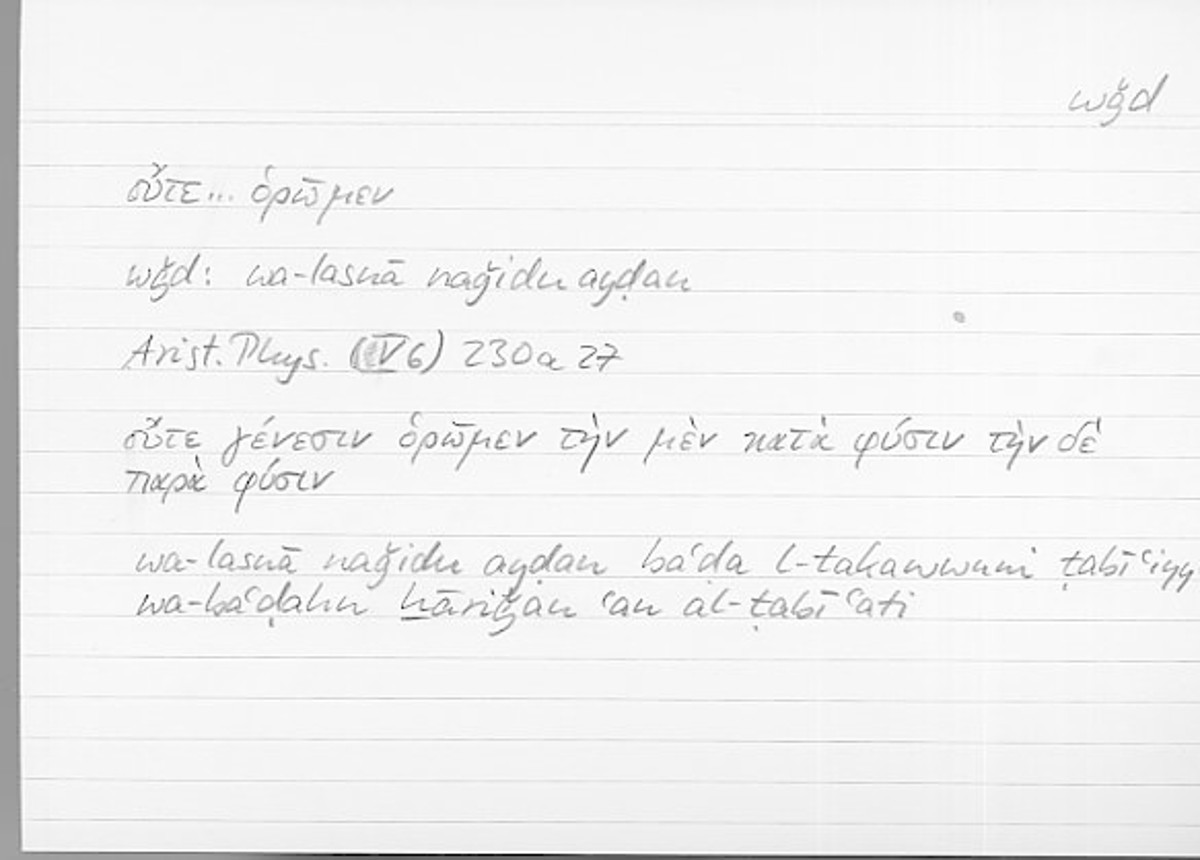 wǧd
οὔτε... ὁρῶμεν
wǧd: wa-lasnā naǧidu ayḍan
Arist. Phys. (V 6) 230a 27
οὔτε γένεσιν ὁρῶμεν τὴν μὲν κατὰ φύσιν τὴν δὲ
παρὰ φύσιν
wa-lasnā naǧidu ayḍan baʿḍa l-takawwuni ṭabīʿiyy
wa-baʿḍahu ḫāriǧan ʿan al-ṭabīʿati